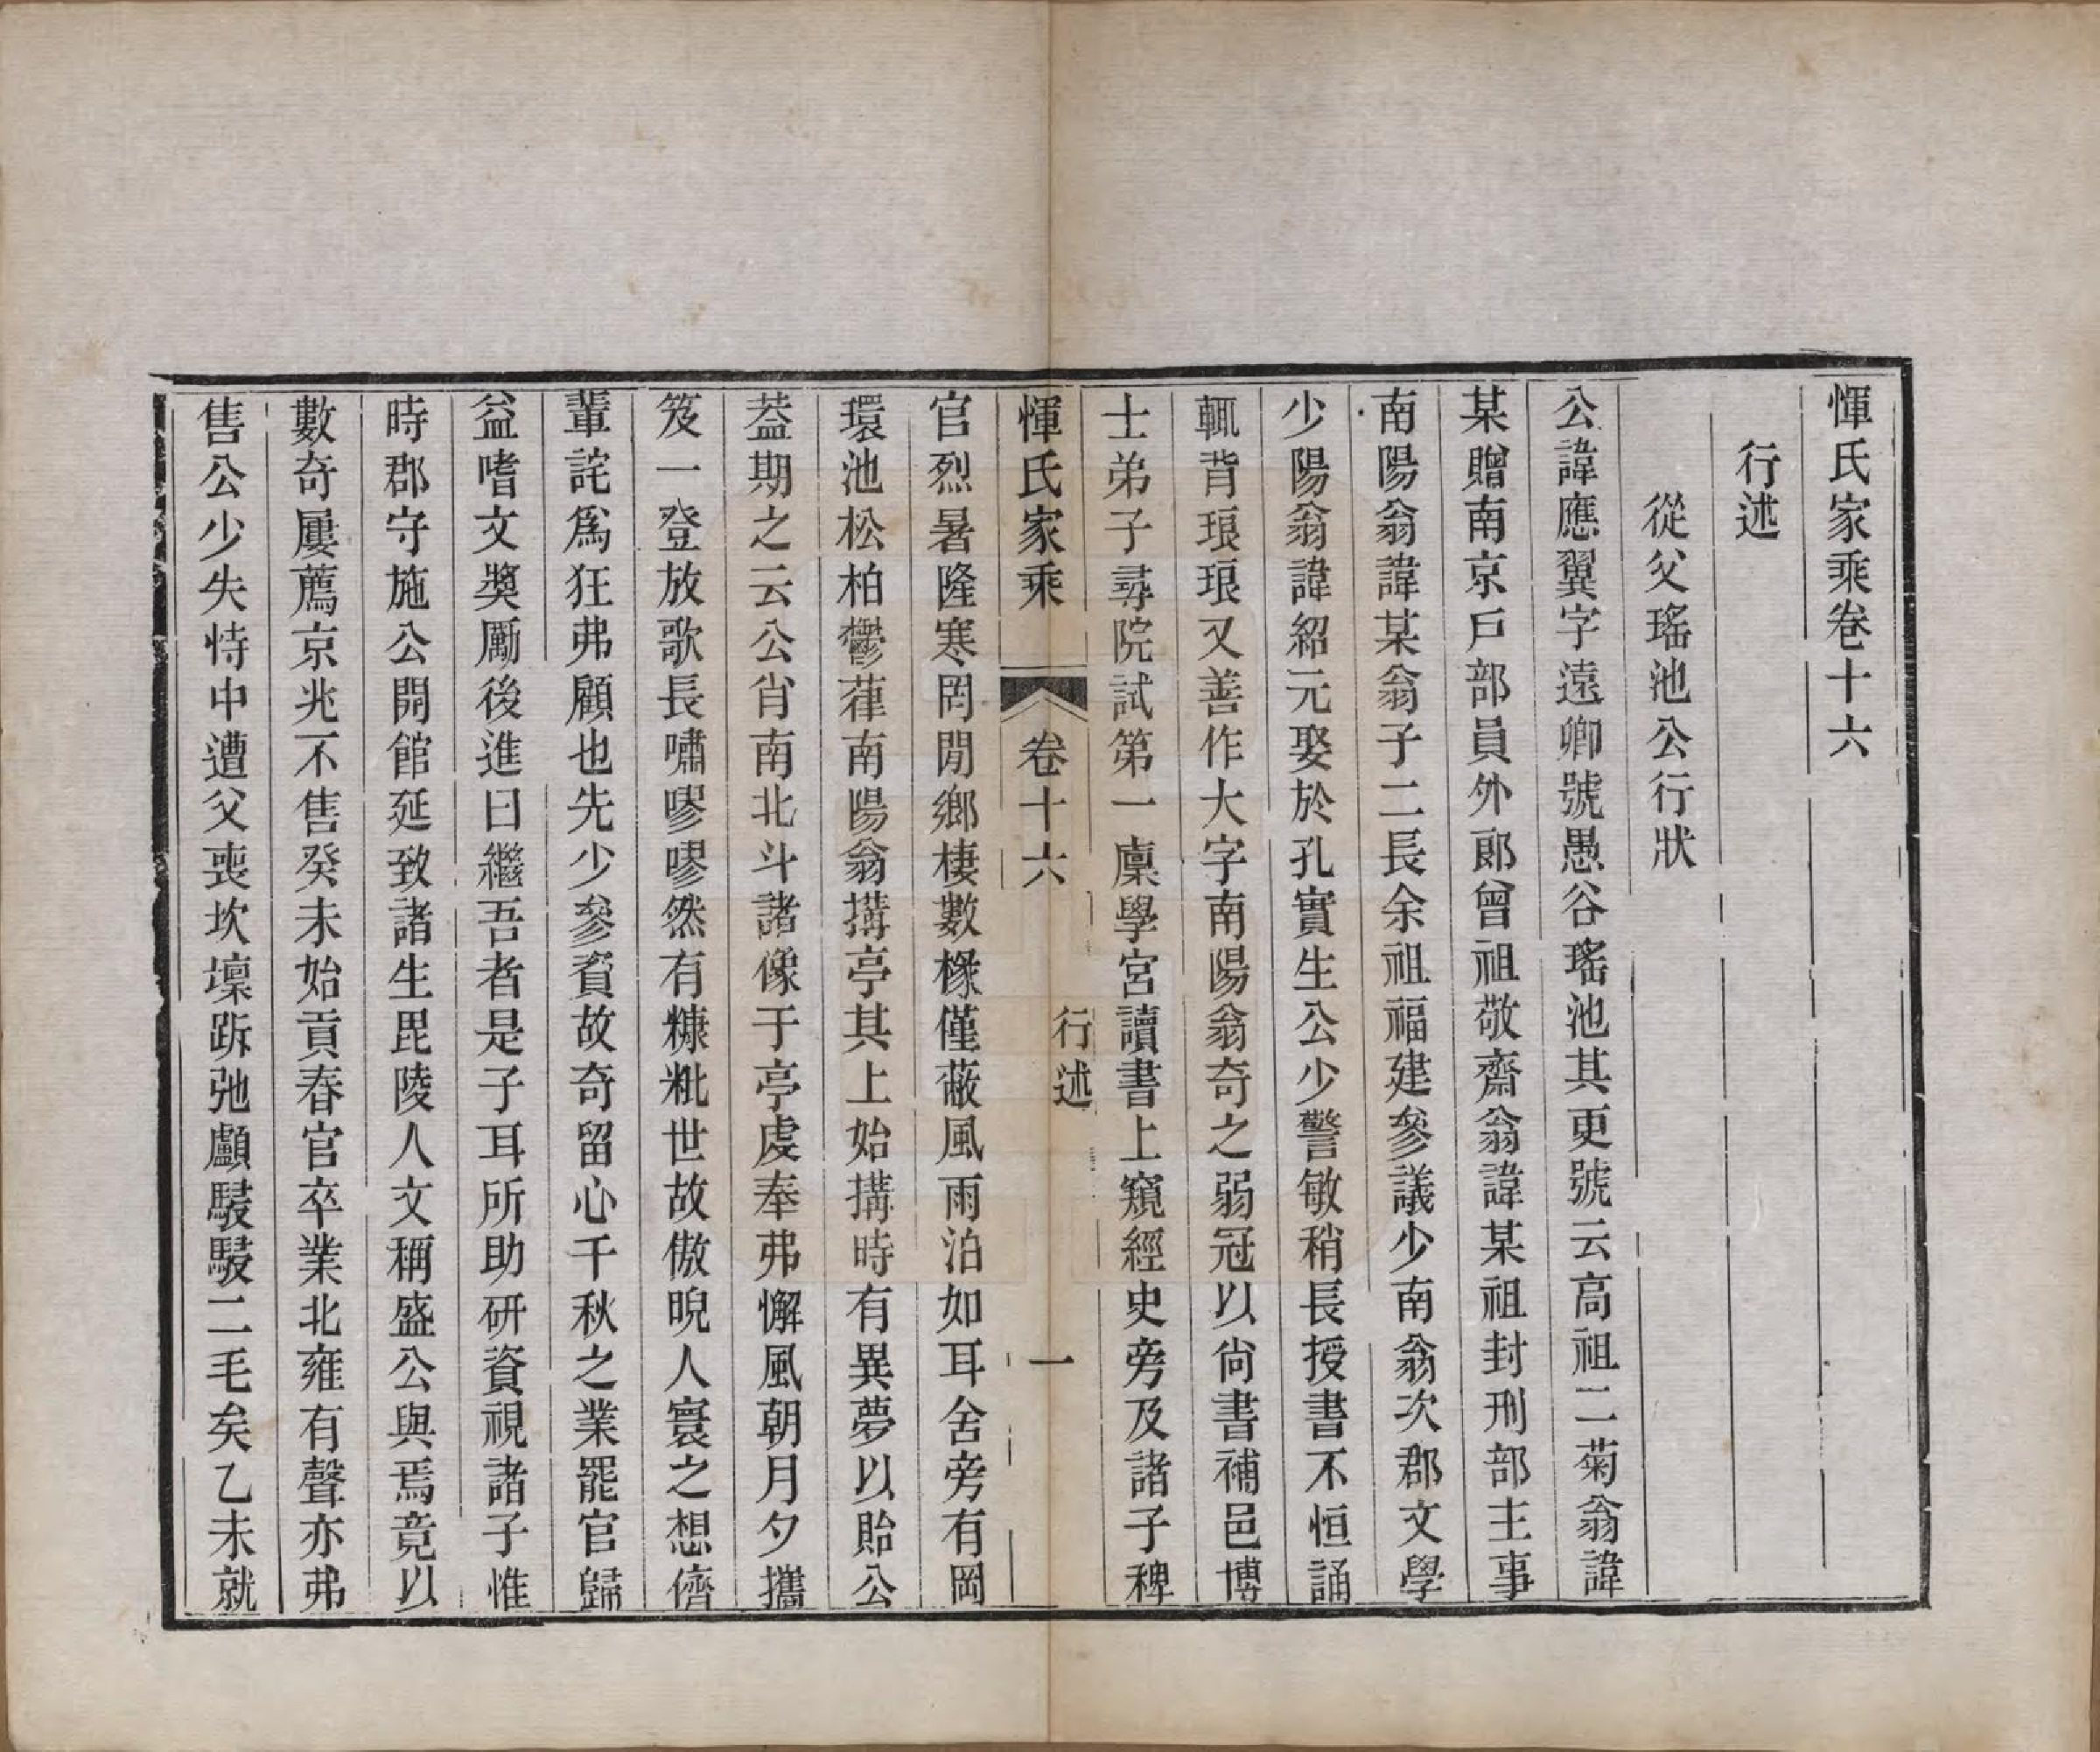 惲氏家乘卷十六
行述
從父瑤池公行狀
公諱應翼字遠卿號愚谷瑤池其更號云高祖二菊翁諱
某贈南京戶部員外郎曾祖敬齋翁諱某祖封刑部主事
南陽翁諱某翁子二長余祖福建參議少南翁次郡文學
少陽翁諱紹元娶於孔實生公少警敏稍長授書不恒誦
輒背琅琅又善作大字南陽翁奇之弱冠以尚書補邑博
士弟子尋院試第一廩學宮讀書上窺經史旁及諸子稗
惲氏家乘 卷十六 行述 一
官烈暑隆寒罔閒鄉棲數椽僅蔽風雨泊如耳舍旁有岡
環池松柏鬱葎南陽翁搆亭其上始搆時有異夢以貽公
葢期之云公肖南北斗諸像于亭虔奉弗懈風朝月夕攜
笈一登放歌長嘯嘐嘐然有糠粃世故傲睨人寰之想儕
輩詫爲狂弗顧也先少參資故奇留心千秋之業罷官歸
益嗜文奬厲後進曰繼吾者是子耳所助研資視諸子惟
時郡守施公開館延致諸生毘陵人文稱盛公與焉竟以
數奇屢薦京兆不售癸未始貢春官卒業北雍有聲亦弗
售公少失恃中遭父喪坎壈跅弛顱駸駸二毛矣乙未就